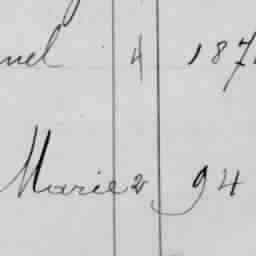 nel 4 187
Marie 2 94